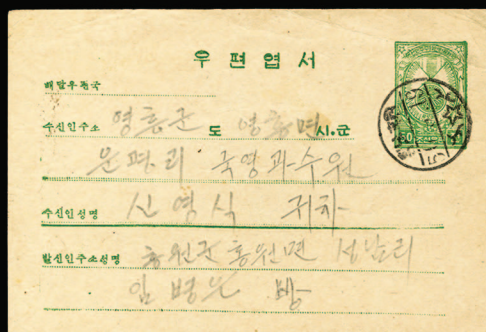 우편엽서
배달우편국
수신인주소 영흥군 도 영흥면 시.군
운평리 국영과수원
수신인성명 신영식 귀하
발신인주소성명 홍원군 홍원면 서남리
임병은 방
50